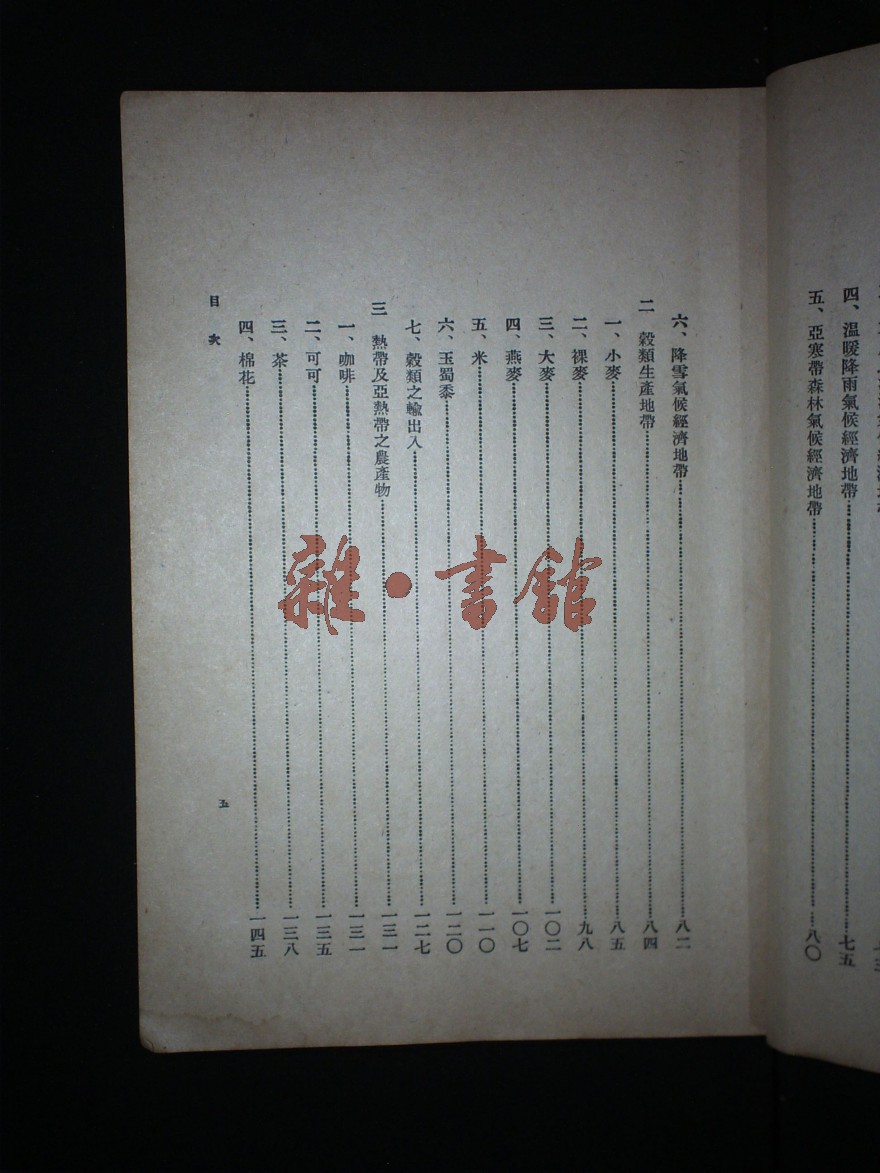 四、溫暖降雨氣候經濟地帶……七五
五、亞寒帶森林氣候經濟地帶……八〇
六、降雪氣候經濟地帶……八二
二 穀類生產地帶……八四
一、小麥……八五
二、裸麥……九八
三、大麥……一〇二
四、燕麥……一〇七
五、米……一一〇
六、玉蜀黍……一二〇
七、穀類之輸出入……一二七
三 熱帶及亞熱帶之農產物……一三一
一、咖啡……一三一
二、可可……一三五
三、茶……一三八
四、棉花……一四五
目次
五
雜·書館